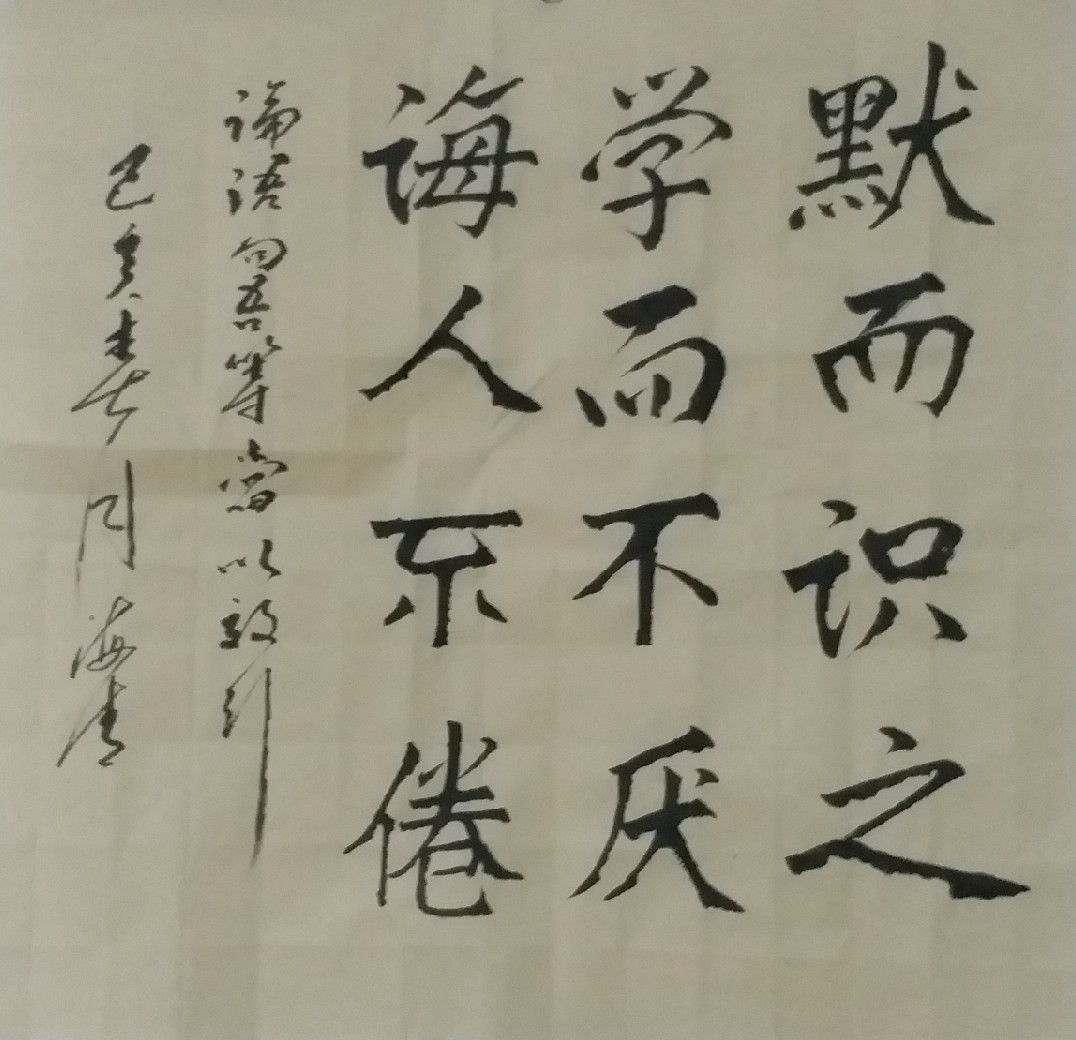 默而识之
学而不厌
诲人不倦
论语句吾等当以效引
己亥春月海清